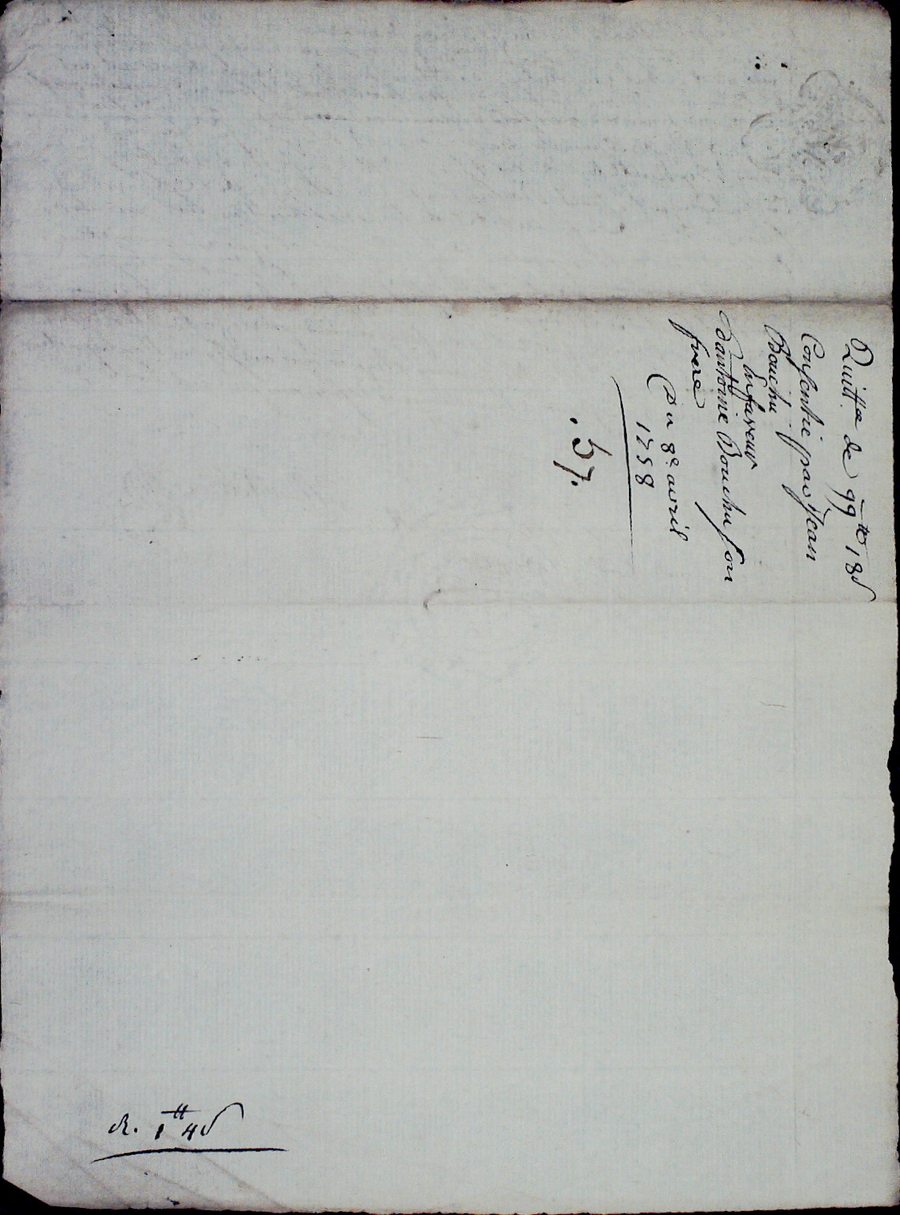 Quitt.ce de 99 tt 18 s
Consentie par Jean
Bouchu
En faveur
d'antoine Bouchu son
frere
Du 8e avril
1758
.57.
R. 1 tt 4 s